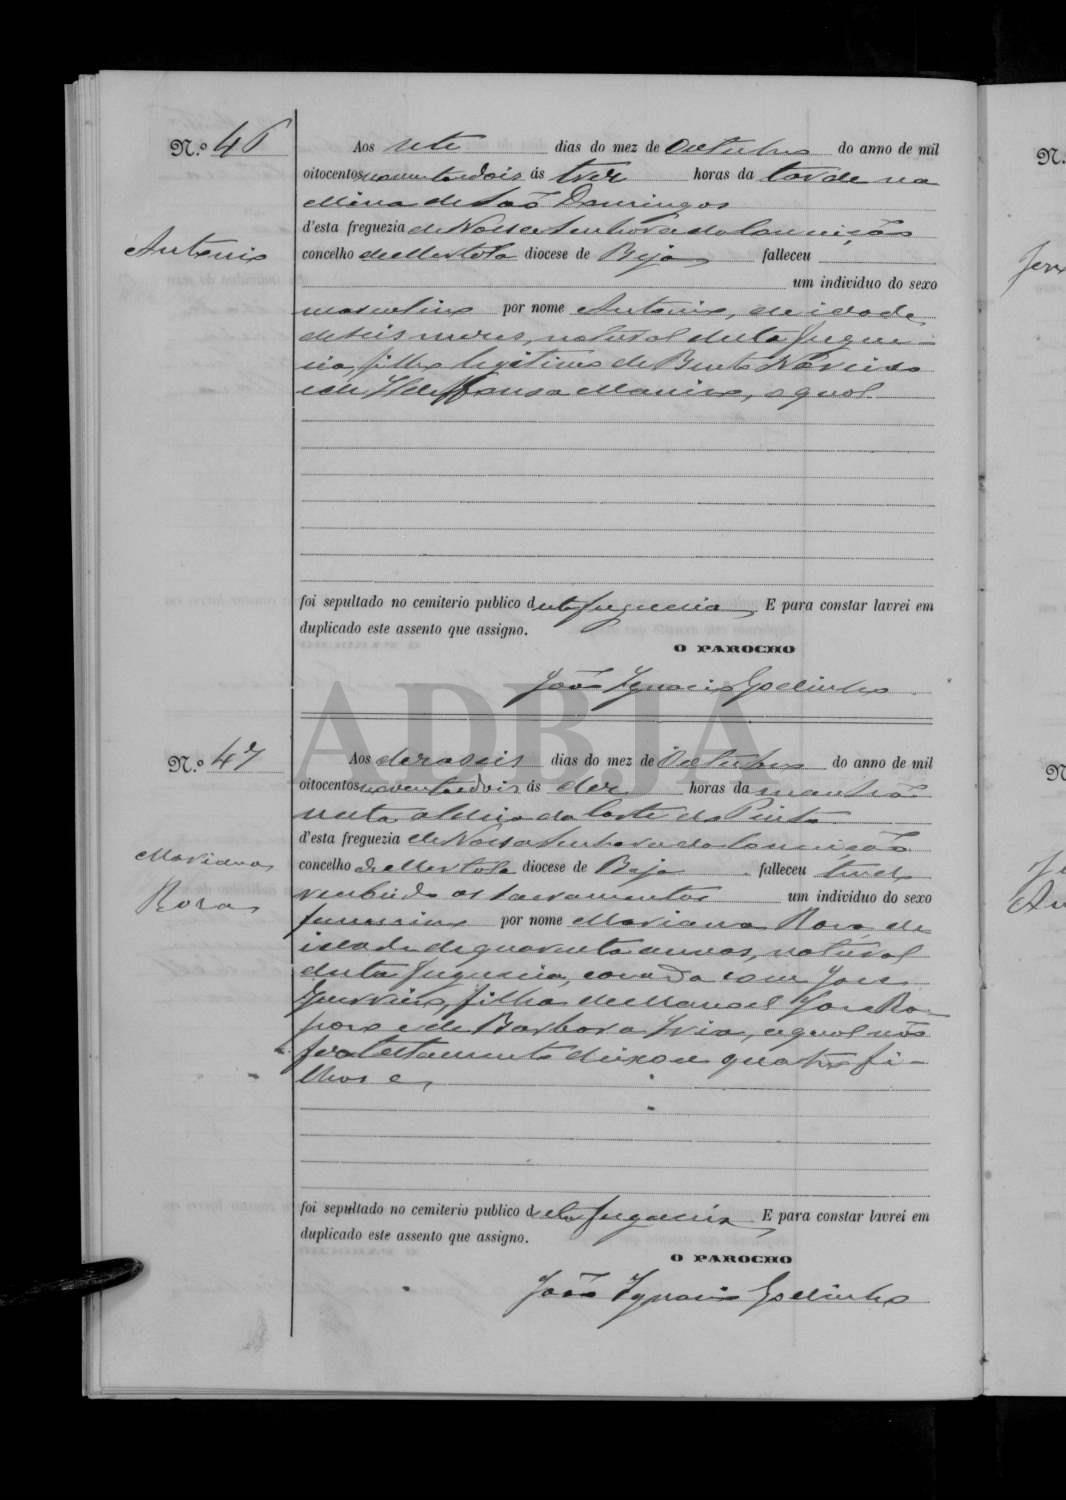 N.º 46
Aos sete dias do mez de Outubro do anno de mil
oitocentos noventa e dois ás tres horas da tarde na
Mina de São Domingos
d'esta freguezia de Nossa Senhora da Conceição
Antonio
concelho de Mertola diocese de Beja falleceu
um individuo do sexo
masculino por nome Antonio, de idade
de seis mezes, natural desta fregue-
zia, filho legitimo de Bento Narciso
e de Ildeffonsa Maria, o qual
foi sepultado no cemiterio publico desta freguezia E para constar lavrei em
duplicado este assento que assigno.
O PAROCHO
João Ignacio Godinho
ADBJA
N.º 47
Aos dezaseis dias do mez de Outubro do anno de mil
oitocentos noventa e dois ás dez horas da manhã
nesta aldeia da Corte do Pinto
d'esta freguezia de Nossa Senhora da Conceição
Marianna
Rosa
concelho de Mertola diocese de Beja falleceu tendo
recebido os sacramentos um individuo do sexo
femenino por nome Marianna Rosa, de
idade de quarenta annos, natural
desta freguezia, casada com José
Guerreiro, filha de Manoel José Ra-
poso e de Barbara, a qual não
fez testamento deixou quatro fi-
lhos e,
foi sepultado no cemiterio publico desta freguezia E para constar lavrei em
duplicado este assento que assigno.
O PAROCHO
João Ignacio Godinho